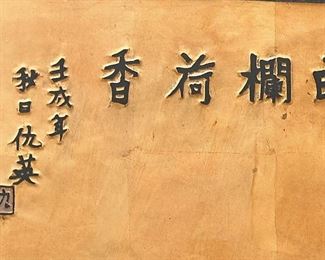 欄荷香
壬戌年
秋日仇英